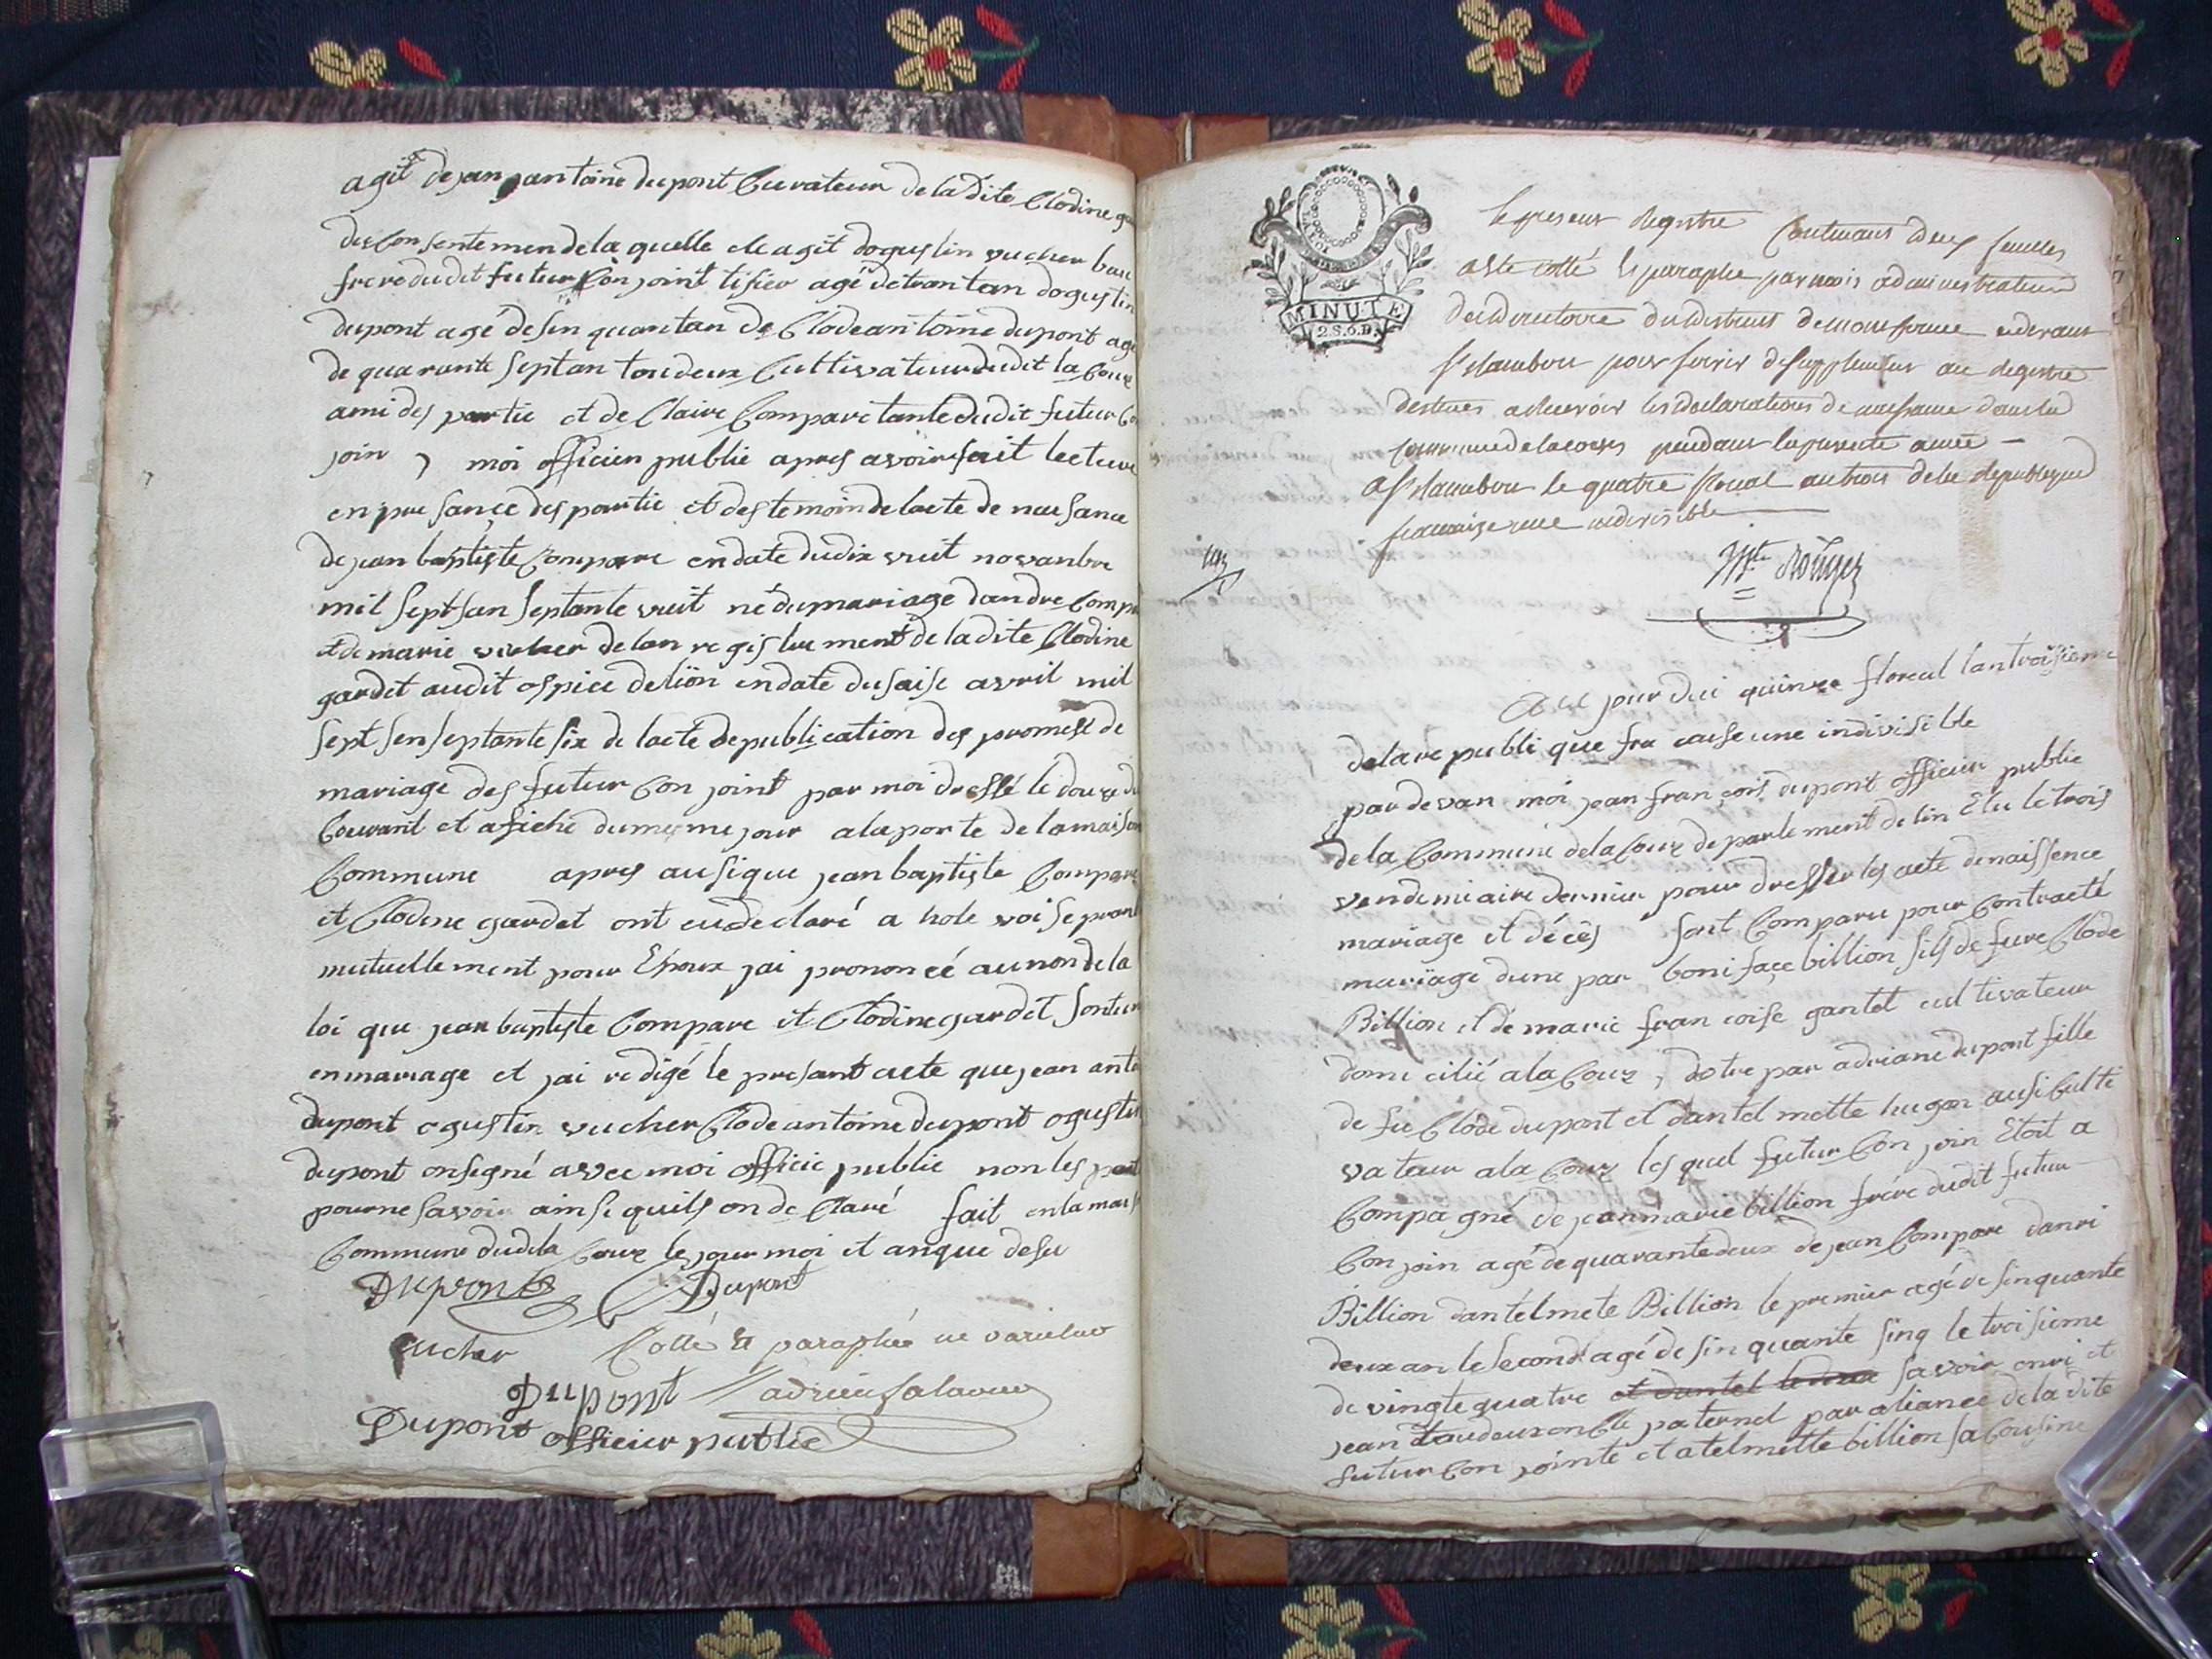 agit de jan jantoine dupont Curateur de la dite Clodine
des Consentemen de la quelle ele agit dogustin vucher bau
frere dudit futur Con joint tisier agé de trantan dogustin
dupont agé de sin quantan de Clode antoine dupont agé
de quarante septan toudeux Cultivateur dudit la Coux
ami des partie et de Claire Compare tante dudit futur Con
join , moi officier public apres avoir fait lecture
en presance des partie et des temoin de lacte de naisance
de jean baptiste Compare en date du dix vuit novanbre
mil sept san septante vuit né du mariage dandre Compare
et de marie vucher de lan registrement de la dite Clodine
gardet audit ospice de lion en date du saise avril mil
sept sen septante six de lacte de publication des promese de
mariage des futur Con joint par moi dressé le douze du
Courant et afiché du mesme jour a la porte de la maison
Commune apres ausi que jean baptiste Compare
et Clodine gardet ont eu declaré a hote voi se prandre
mutuellement pour Epoux jai prononcé au non de la
loi que jean baptiste Compare et Clodine gardet sont uni
en mariage et jai redigé le presant acte que jean antoine
dupont ogustin vucher Clode antoine dupont ogustin
dupont on signé avec moi officie public non les parti
pour ne savoir ainsi quils on de Claré fait en la maison
Commune dudit la Coux le jour moi et an que desu
Dupont Dupont
vucher Cotté & paraphé ne varietur
Dupont
Dupont officier public
MINUTE
2.S.6.D.
le present Registre Contenant deux feuilles
a été cotté & paraphé par nous administrateur
du Directoire du district de monferme cidevant
St Rambert pour servir de supplement au Registre
destinés a Recevoir les declarations de naissance dans la
commune de lacoux pendant la presente année —
a St Rambert le quatre floreal an trois de la Republique
francaise une indivisible
Au jour dui quinze floreal lan troisieme
de la republi que fra caise une indivisible
par devan moi jean fran cois dupont officier public
de la Commune de la Coux departement de lin Elu le trois
vendemiaire dernier pour dresser les acte de naissence
mariage et décès sont Comparu pour Contracté
mariage dune par boniface billion fils de fure Clode
Billion et de marie fran coise gantet cul tivateur
domi cilié a la Coux , dotre par adriane dupont fille
de fu Clode dupont et dantel mette hugon ausi Culti
vateur a la Coux les quel futur Con join Etoit a
Compagné de jean marie billion frére dudit futur
Con join agé de quarante deux de jean Compare danri
Billion dantelmete Billion le premier agé de sinquante
deux an le second agé de sin quante sinq le troisieme
de vingte quatre savoir enri et
jean toudeux oncle paternel par aliance de la dite
futur Con jointe et atelmette billion sa Cousine